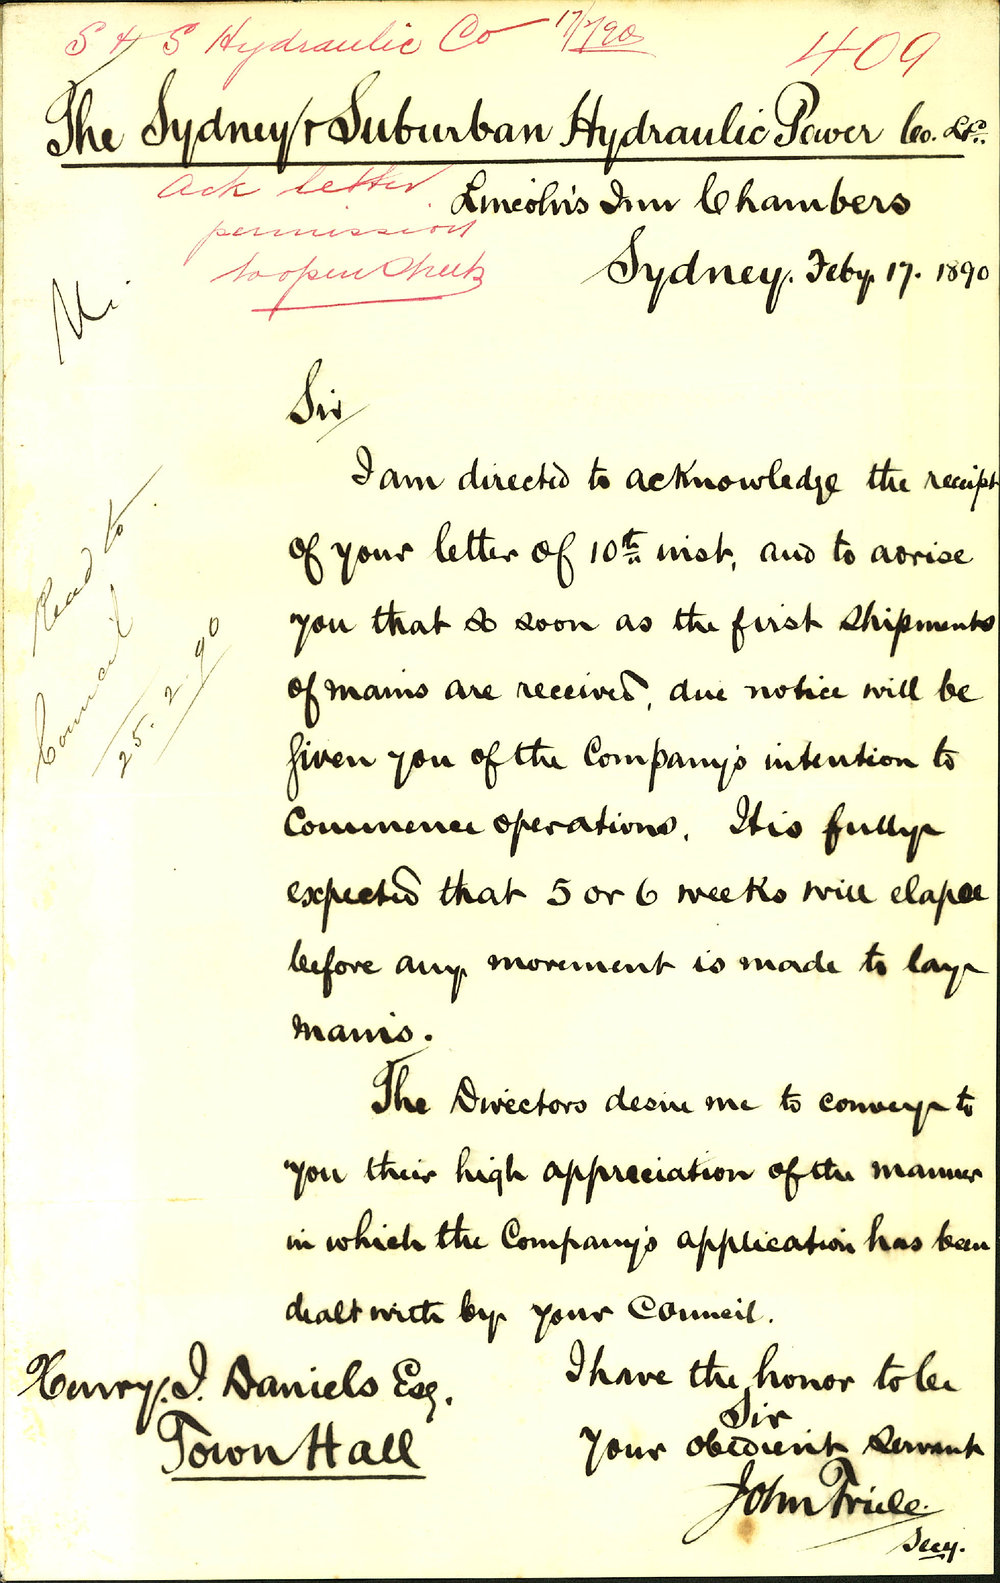 S & S Hydraulic Co 17/2/90
409
The Sydney & Suburban Hydraulic Power Co. Ld.
Ack letter
permission
to open streets
Lincoln's Inn Chambers
Sydney. Feby 17. 1890
Sir
I am directed to acknowledge the receipt
of your letter of 10th inst, and to advise
you that so soon as the first shipments
of mains are received, due notice will be
given you of the Company's intention to
commence operations. It is fully
expected that 5 or 6 weeks will elapse
before any movement is made to lay
mains.
The Directors desire me to convey to
you their high appreciation of the manner
in which the Company's application has been
dealt with by your Council.
I have the honor to be
Sir
Your obedient servant
John Trule.
Secy.
Henry. J. Daniels Esq.
Town Hall
Read to
Council
25.2.90